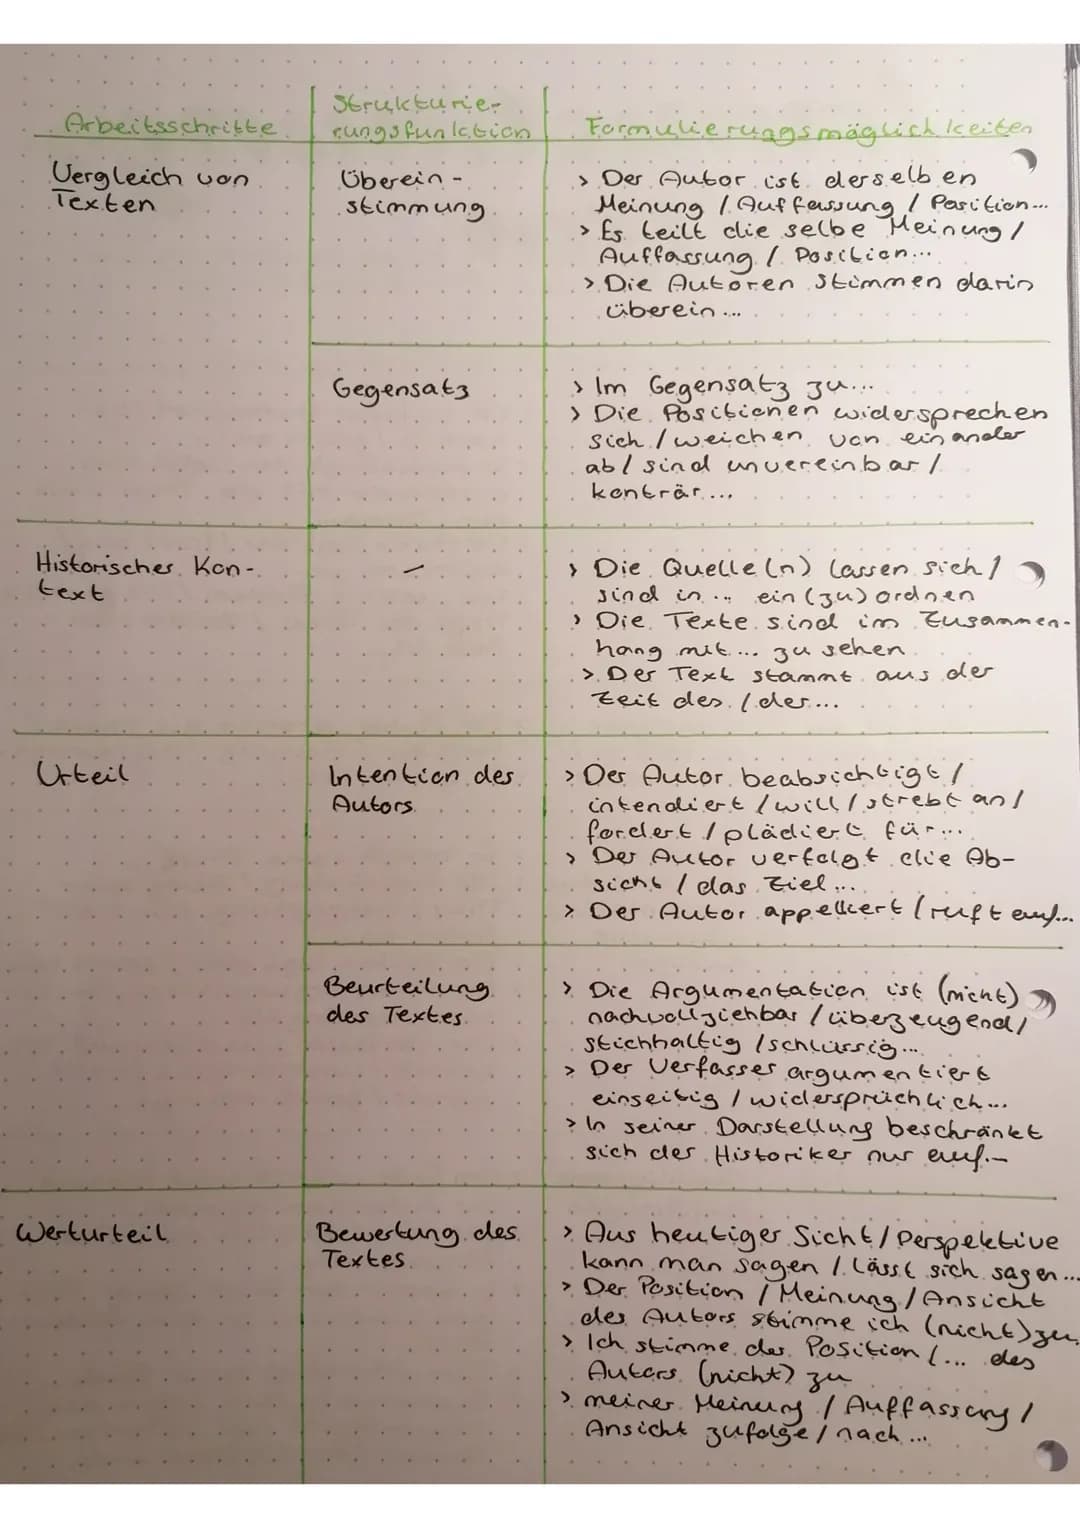 Arbeitsschritte
Strukturie-
rungsfunktion
Formulierungsmöglichkeiten
Vergleich von
Texten
Überein-
stimmung
> Der Autor ist derselben
Meinung / Auffassung / Position...
> Es teilt die selbe Meinung /
Auffassung / Position...
> Die Autoren stimmen darin
überein...
Gegensatz
> Im Gegensatz zu...
> Die Positionen widersprechen
sich / weichen von einander
ab / sind unvereinbar /
konträr...
Historischer Kon-
text
-
> Die Quelle(n) lassen sich /
sind in ... ein(zu)ordnen
> Die Texte sind im Zusammen-
hang mit ... zu sehen
> Der Text stammt aus der
Zeit des / der...
Urteil
Intention des
Autors
> Der Autor beabsichtigt /
intendiert / will / strebt an /
fordert / plädiert für...
> Der Autor verfolgt die Ab-
sicht / das Ziel...
> Der Autor appelliert / ruft auf...
Beurteilung
des Textes
> Die Argumentation ist (nicht)
nachvollziehbar / überzeugend /
stichhaltig / schlüssig...
> Der Verfasser argumentiert
einseitig / widersprüchlich...
> In seiner Darstellung beschränkt
sich der Historiker nur auf...
Werturteil
Bewertung des
Textes
> Aus heutiger Sicht / Perspektive
kann man sagen / Lässt sich sagen...
> Der Position / Meinung / Ansicht
des Autors stimme ich (nicht) zu
> Ich stimme der Position / ... des
Autors (nicht) zu
> meiner Meinung / Auffassung /
Ansicht zufolge / nach...